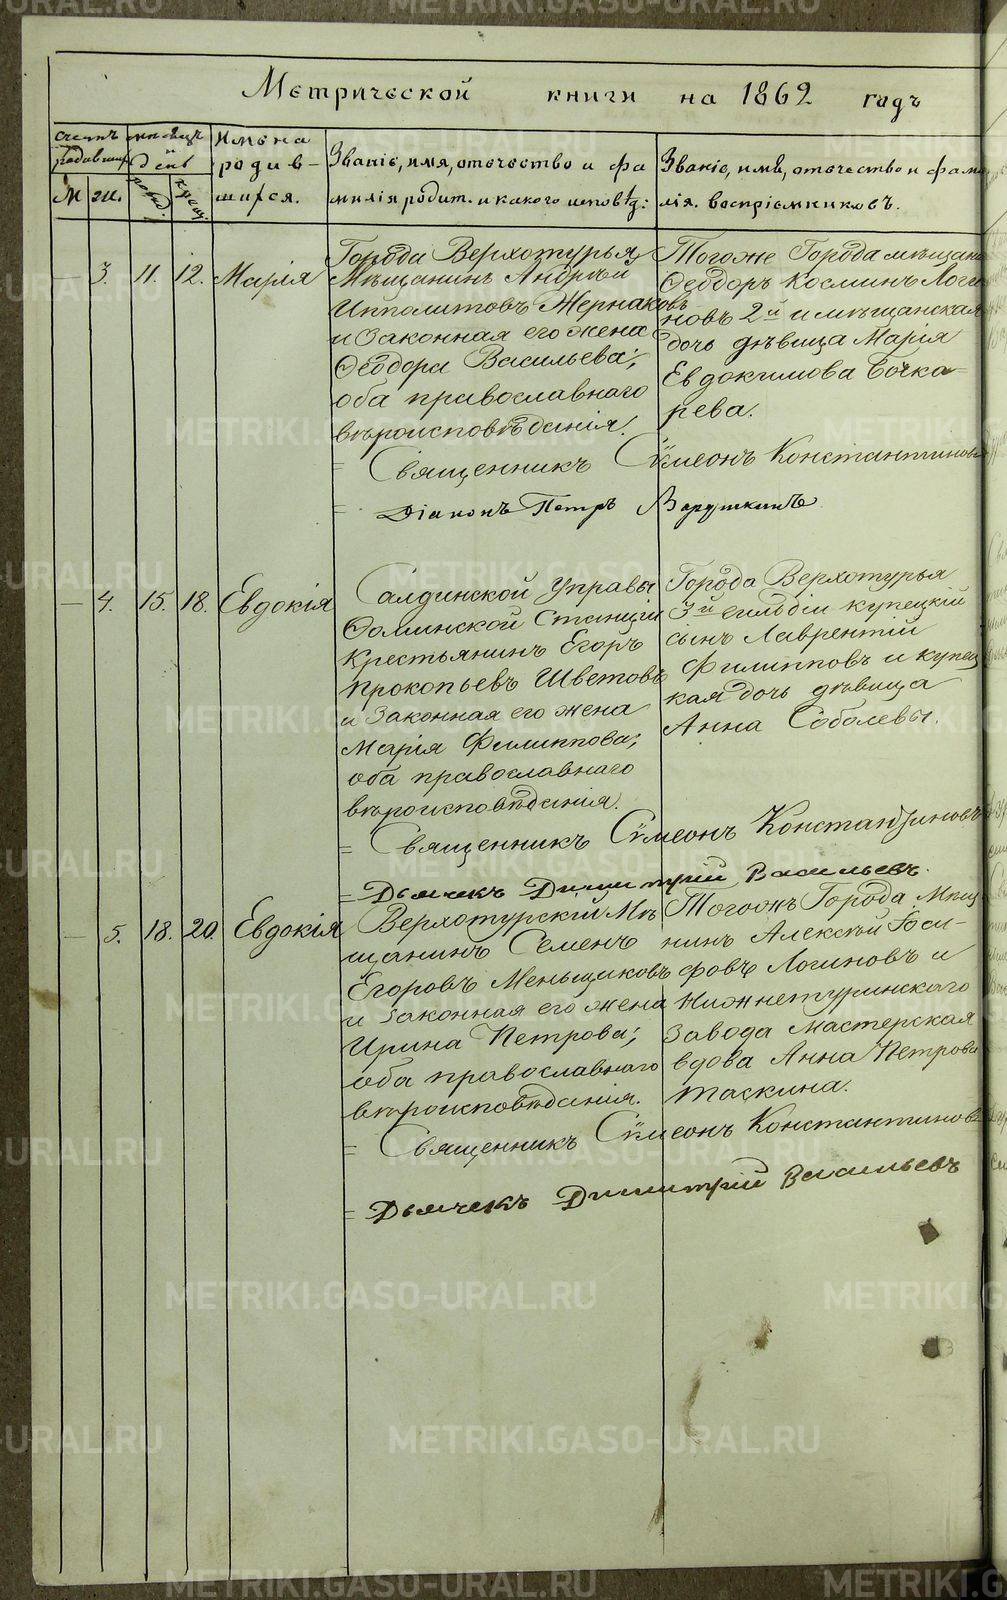 Метрической книги на 1862 годъ
счетъ родивших
мѣсяцъ и день
Имена родив-шихся.
Званіе, имя, отечество и фа
милія родит. и какого исповѣд:
Званіе, имя, отечество и фами
лія воспріемниковъ.
М ж. рожд. крещ.
— 3. 11. 12. Марія
Города Верхотурья
Мѣщанинъ Андрей
Ипполитовъ Жернаковъ
и Законная его жена
Ѳеодора Васильева;
оба православнаго
вѣроисповѣданія.
Тогоже Города мѣщане
Ѳеодоръ Косминъ Логи
новъ 2й и мѣщанская
дочь дѣвица Марія
Евдокимова Бочка-
рева.
= Священникъ Сѵмеонъ Константиновъ
= Діаконъ Петръ
— 4. 15. 18. Евдокія
Салдинской Управы
Ѳоминской Станціи
Крестьянинъ Егоръ
Прокопьевъ Шветовъ
и Законная его жена
Марія Филиппова;
оба православнаго
вѣроисповѣданія.
Города Верхотурья
3й гильдіи купецкій
сынъ Лаврентій
Филипповъ и купец
кая дочь дѣвица
Анна Соболевы.
= Священникъ Сѵмеонъ Константиновъ
= Дьячекъ Димитрій Васильевъ.
— 5. 18. 20. Евдокія
Верхотурскій Мѣ
щанинъ Семенъ
Егоровъ Меньщиковъ
и Законная его жена
Ирина Петрова;
оба православнаго
вѣроисповѣданія.
Тогожъ Города Мѣщ
нинъ Алексѣй Іоси-
фовъ Логиновъ и
Нижнетуринскаго
Завода мастерская
вдова Анна Петрова
Таскина.
= Священникъ Сѵмеонъ Константинов
= Дьячекъ Димитрій Васильевъ
METRIKI.GASO-URAL.RU